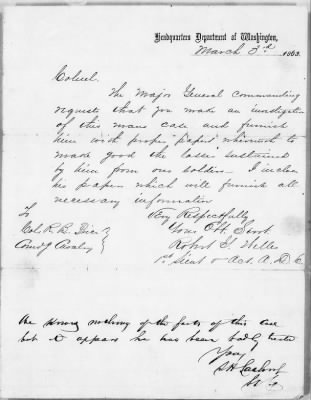 Headquarters Department of Washington,
March 3d 1863.
Colonel.
The Major General Commanding
requests that you make an investigation
of this mans case and furnish
him with proper "papers" wherewith to
make good the losses sustained
by him from our soldiers. I inclose
his papers which will furnish all
necessary information
Very Respectfully
Your Obt. Servt.
To
Col. R. B. Price
Comdg Cavalry
1st Lieut & Act. A. D. C
of the facts of this case
but it appears he has been badly treated
Yours